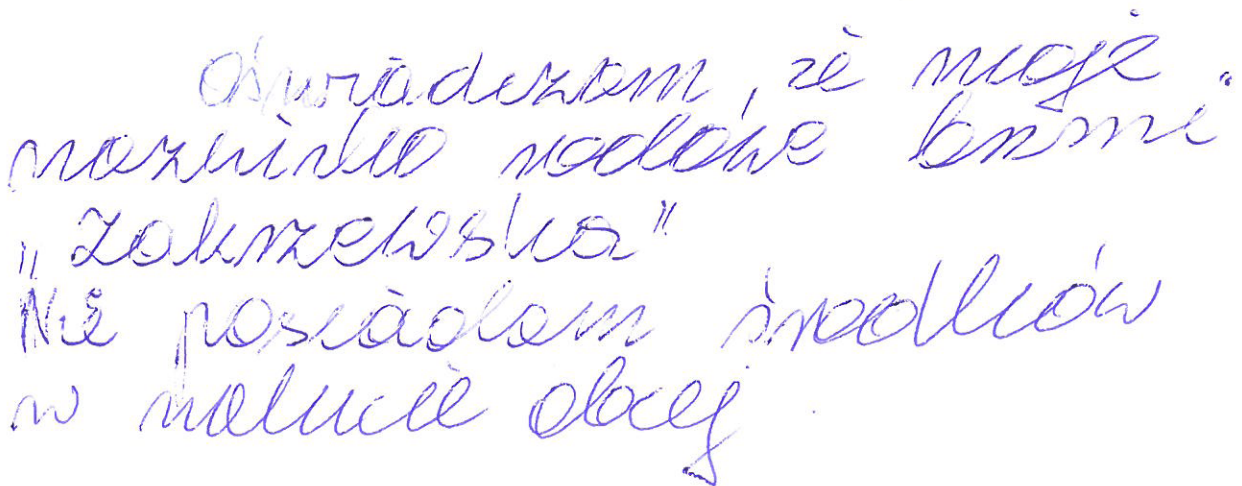 Oświadczam, że moje
nazwisko rodowe brzmi
„Zakrzewska"
Nie posiadam środków
w walucie obcej.